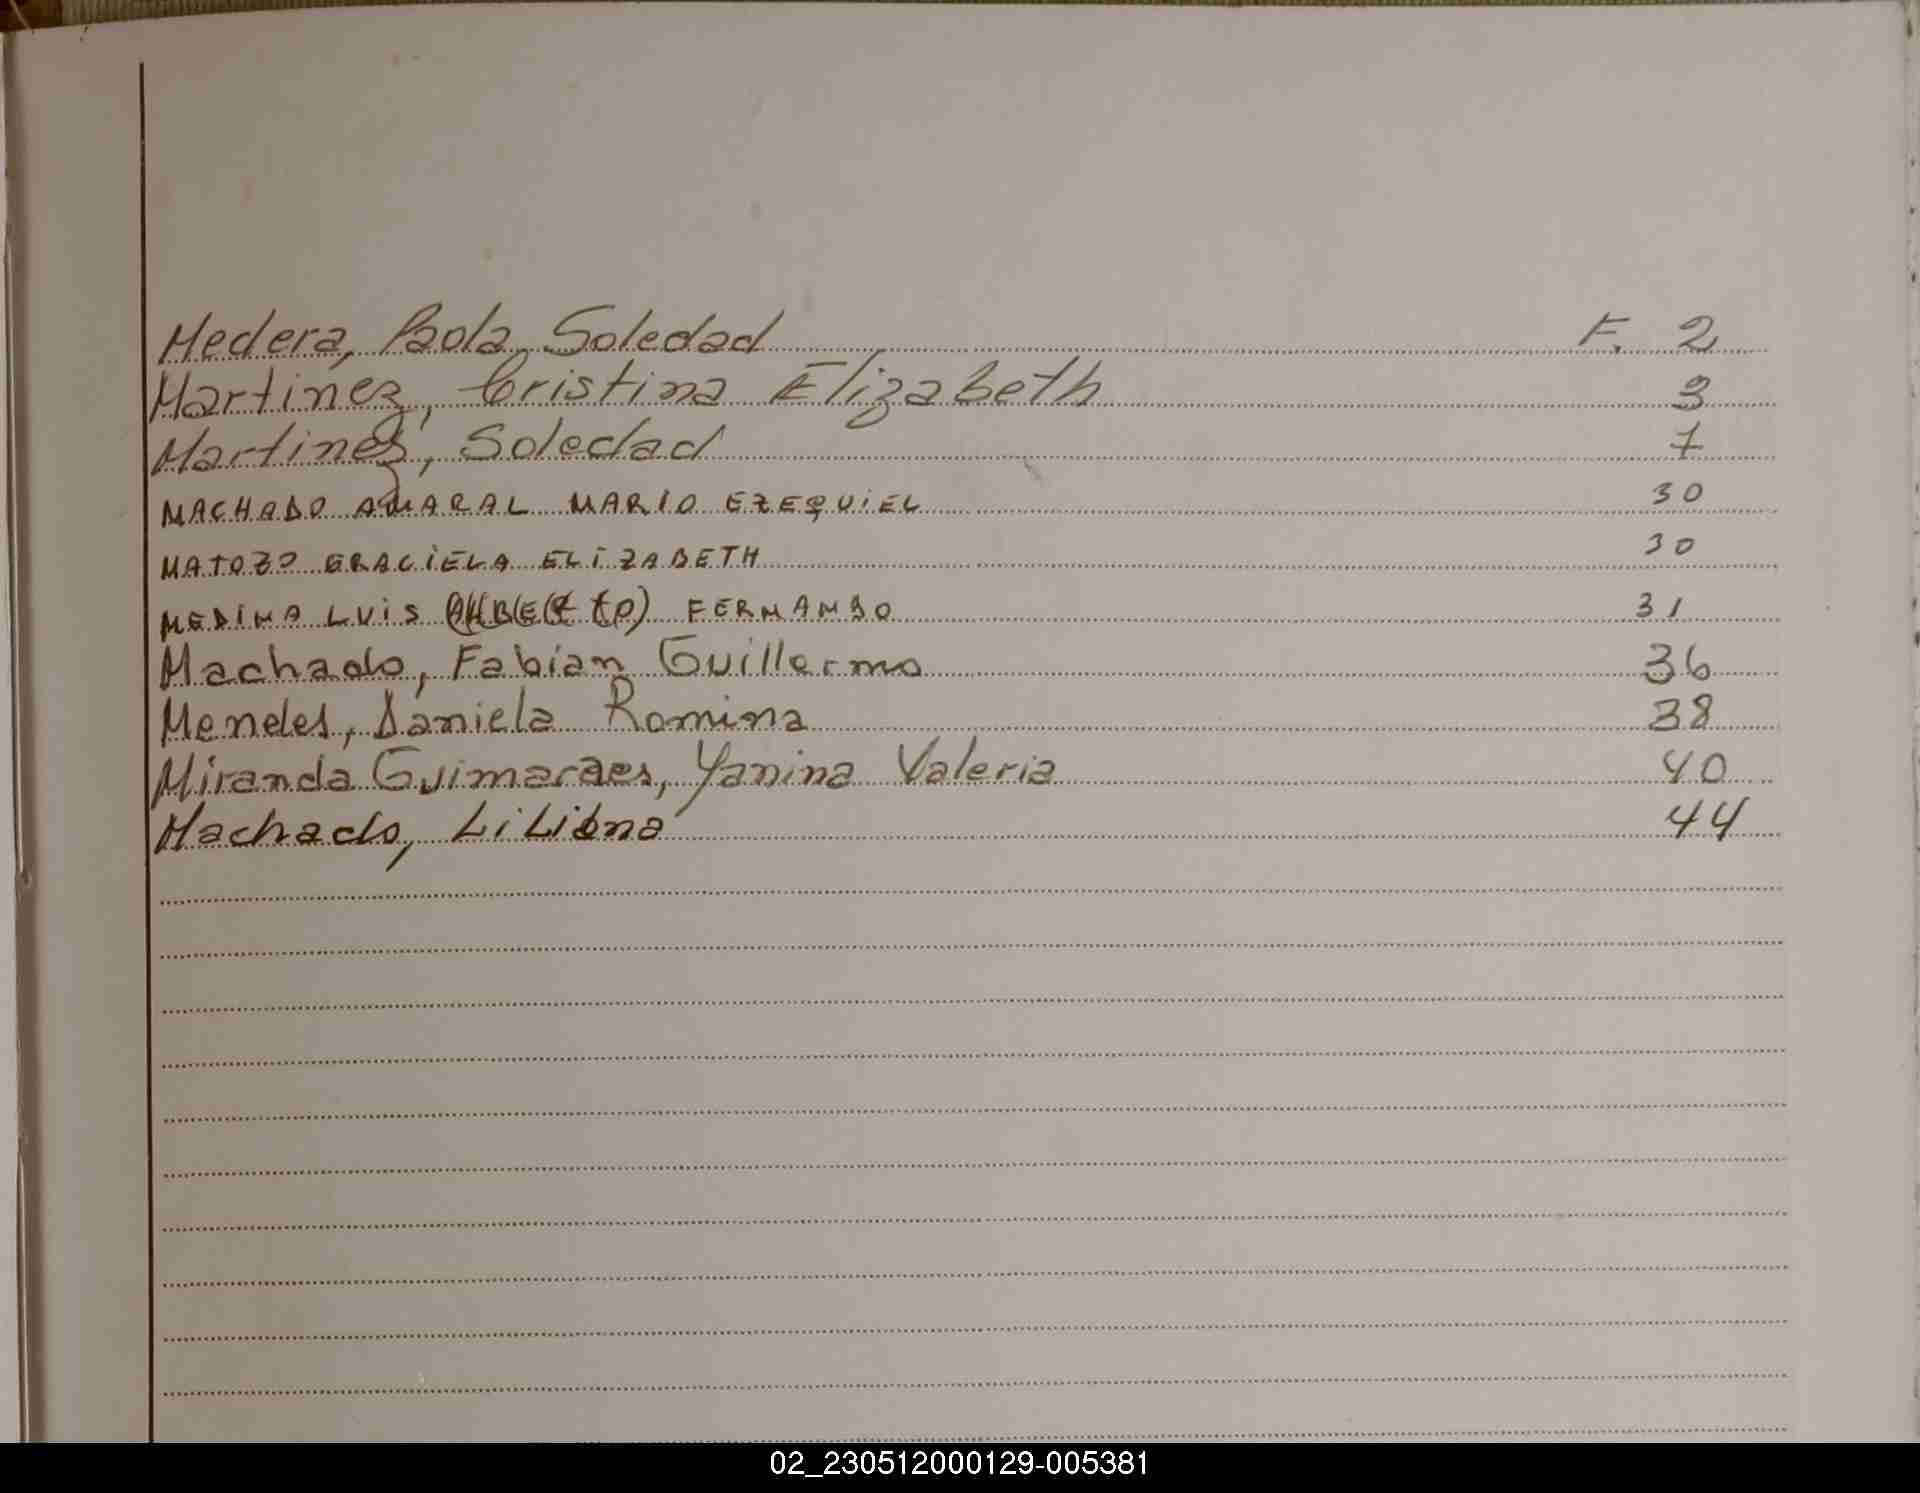 Medera, Paola Soledad F. 2
Martinez, Cristina Elizabeth 3
Martinez, Soledad 7
MACHADO AMARAL MARIO EZEQUIEL 30
MATOZO GRACIELA ELIZABETH 30
MEDINA LUIS FERNANDO 31
Machado, Fabian Guillermo 36
Mendes, Daniela Romina 38
Miranda Guimaraes, Yanina Valeria 40
Machado, LiLiana 44
02_230512000129-005381